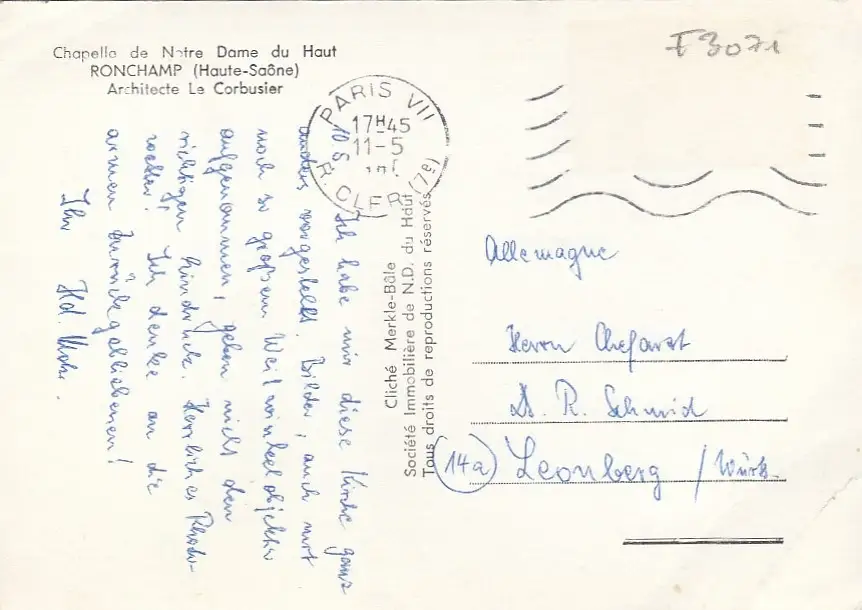 Chapelle de Notre Dame du Haut
RONCHAMP (Haute-Saône)
Architecte Le Corbusier
F3071
PARIS VII
17H45
11-5
R. CLER (7e)
10.5. Ich habe mir diese Kirche ganz
anders vorgestellt. Bilder, auch mit
noch so großem Weitwinkelobjektiv
aufgenommen, geben nicht den
richtigen Eindruck. Herrliches Rhodo-
wetter! Ich denke an die
armen Zurückgebliebenen!
Ihr
Cliché Merkle-Bâle
Société Immobilière de N.D. du Haut
Tous droits de reproductions réservés
Allemagne
Herrn Chefarzt
Dr. R. Schmid
(14a) Leonberg / Württ.